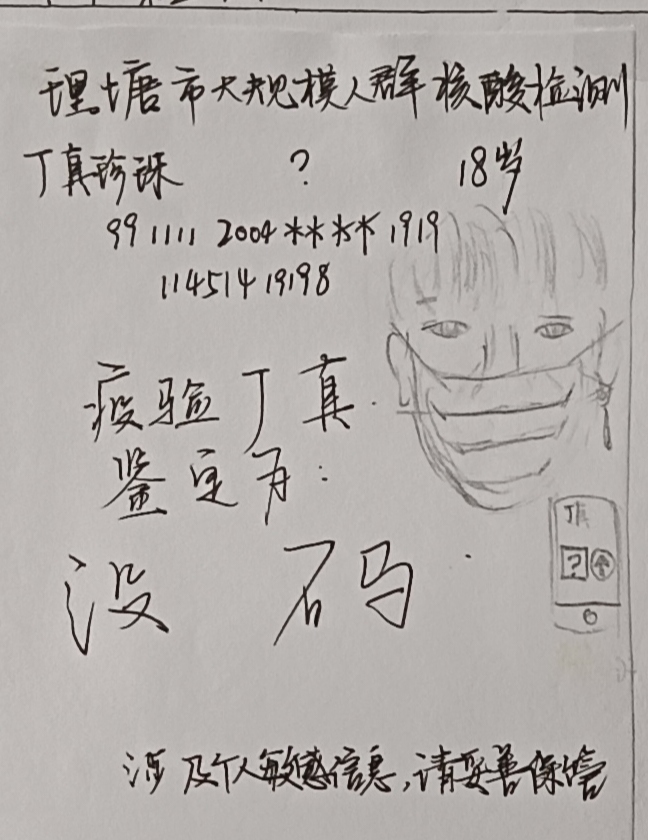 理塘市大规模人群核酸检测
丁真珍珠 ? 18岁
99 1111 2004 **** 1919
114514 19198
疫验丁真.
鉴定为:
没 码.
丁真
?
涉及个人敏感信息,请妥善保管